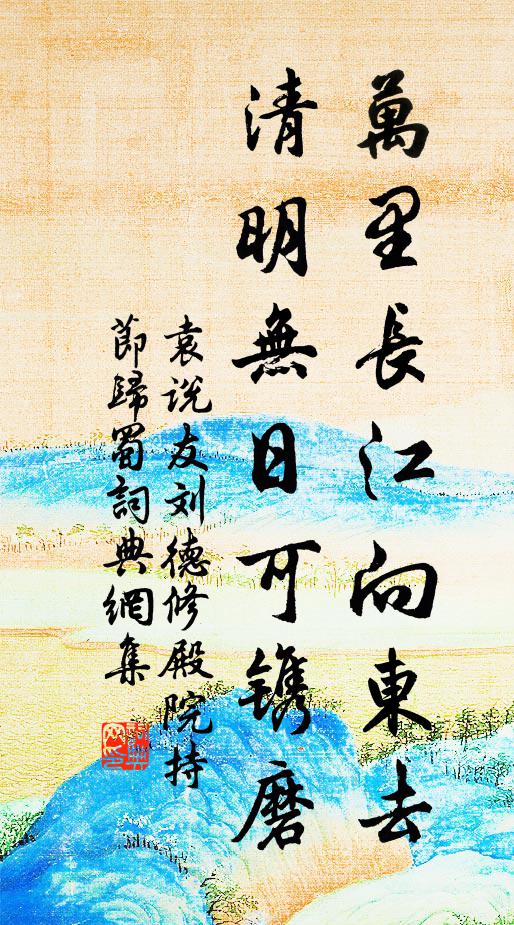 萬里長江向東去
清明無日可镌磨
袁说友刘德修殿院持
節歸蜀詞典網集